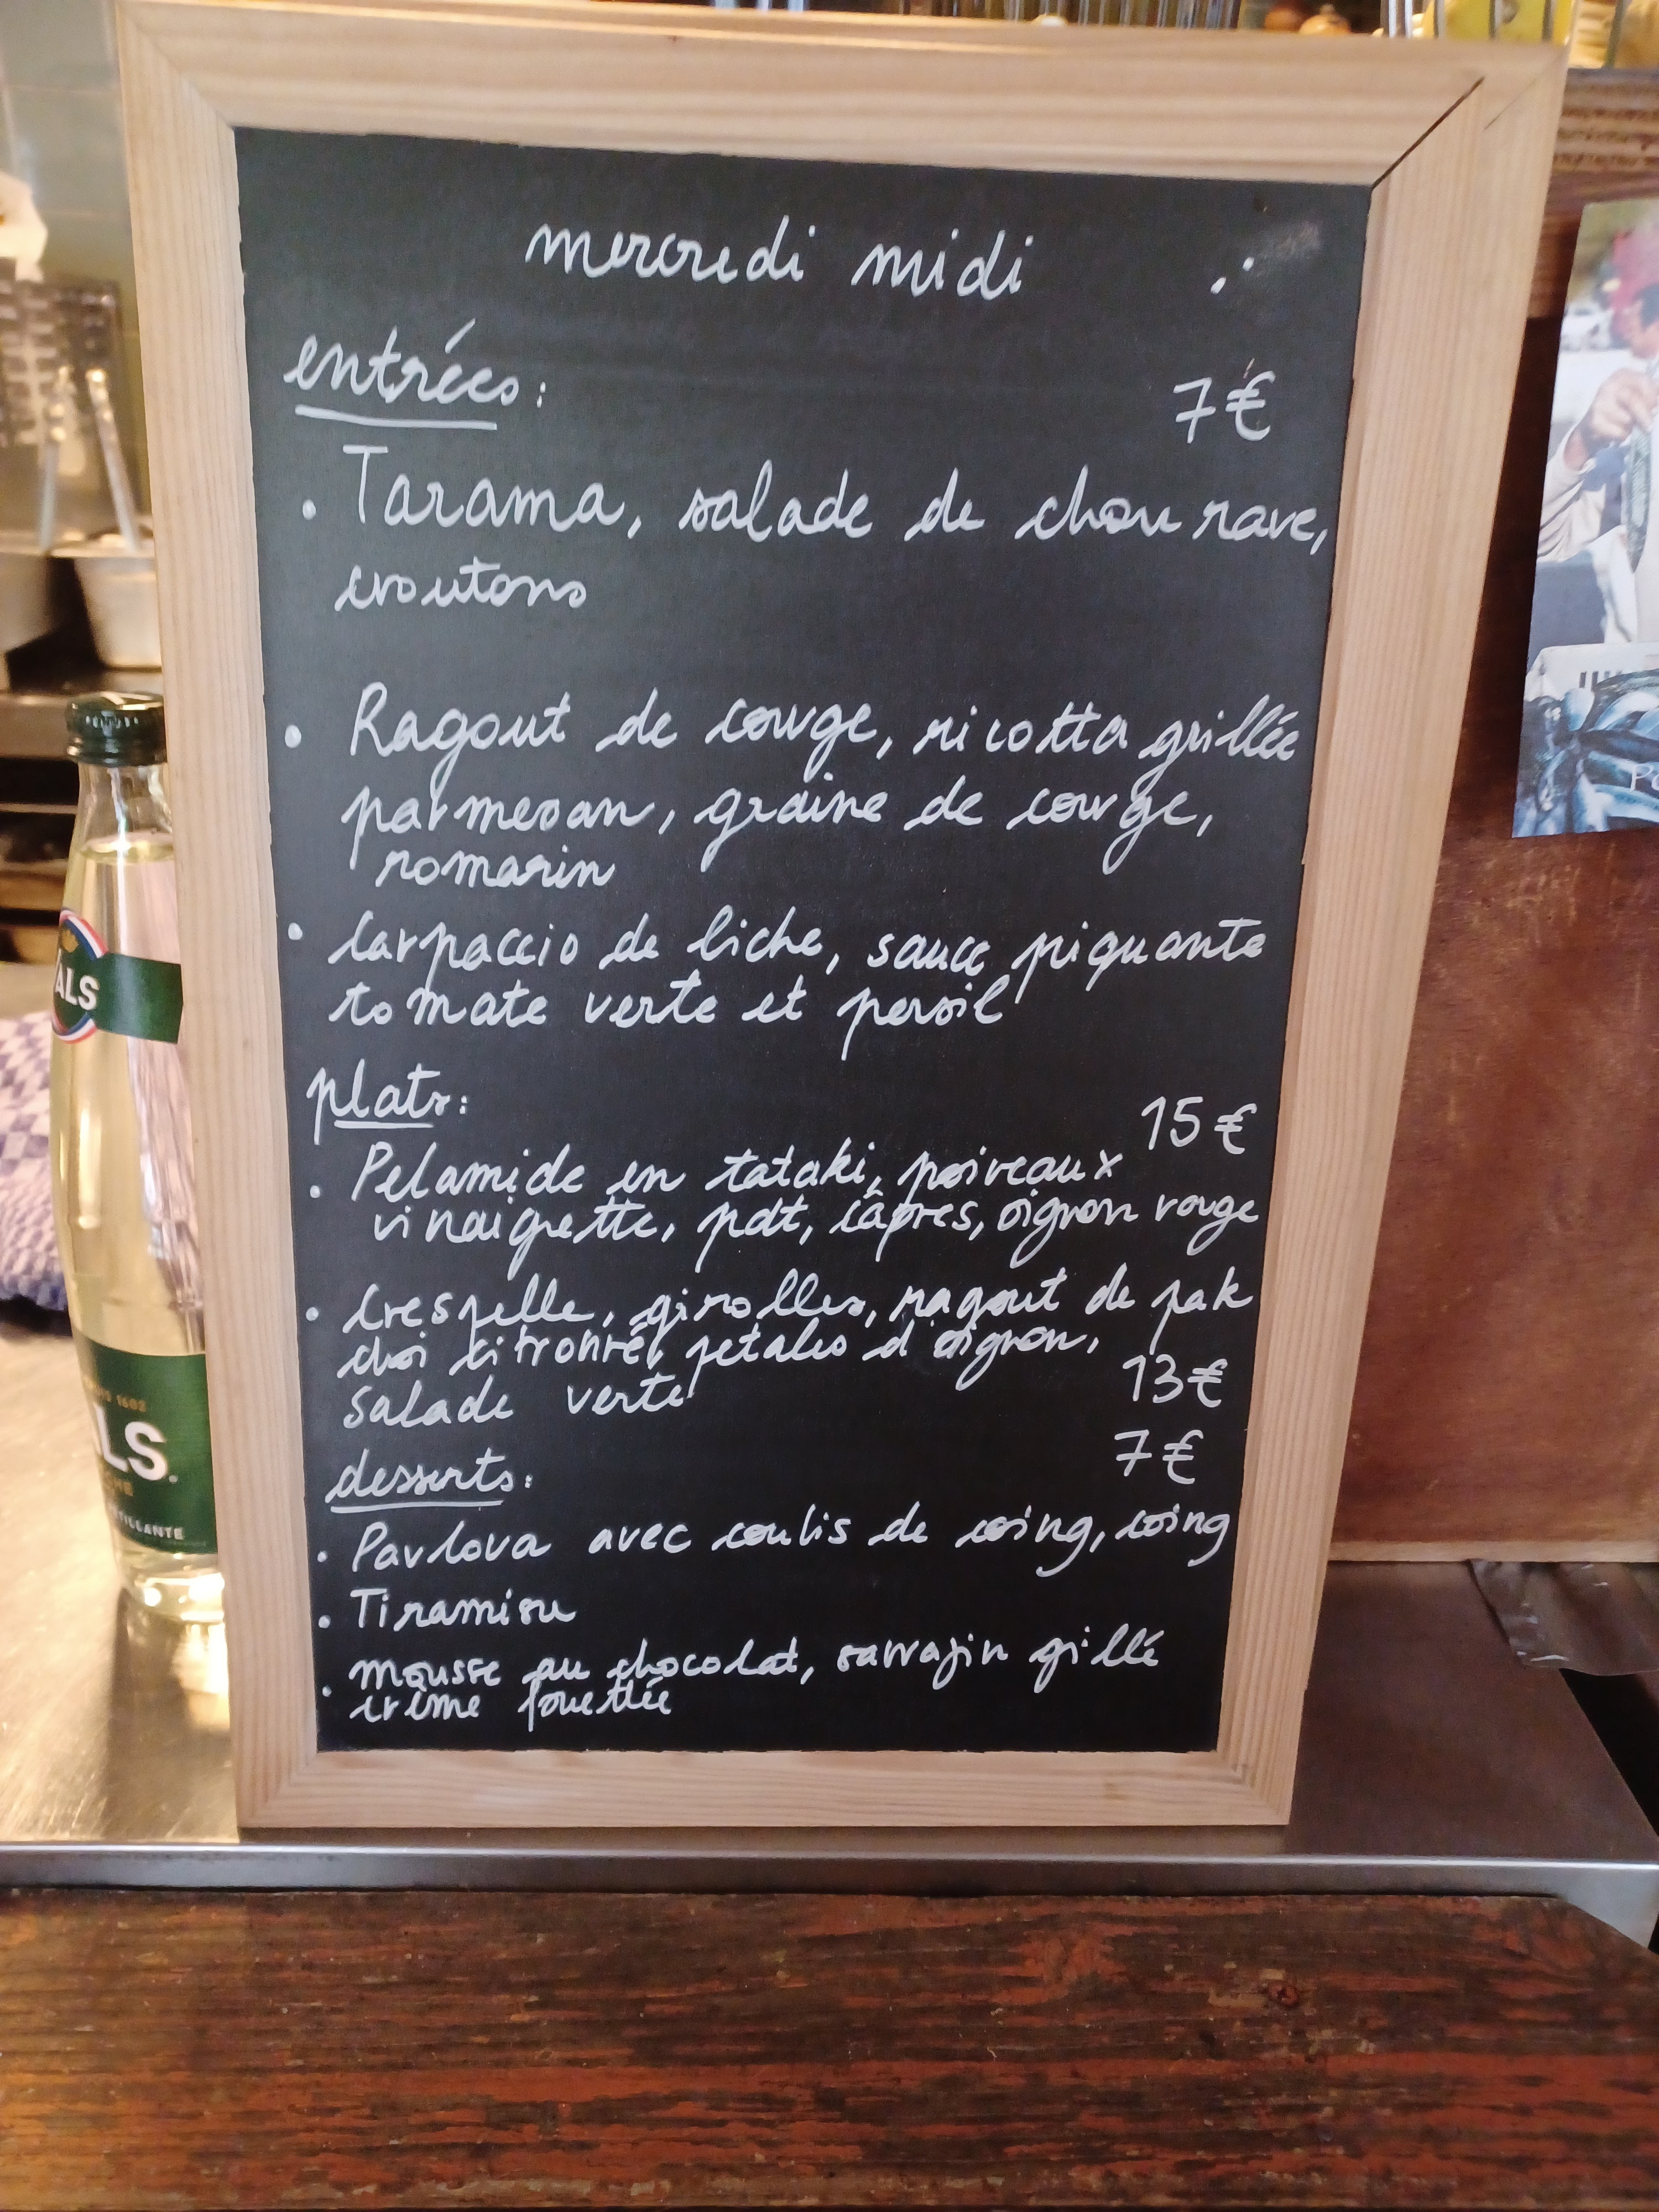 mercredi midi
entrées : 7€
• Tarama, salade de chou rave,
croutons
• Ragout de courge, ricotta grillée
parmesan, graine de courge,
romarin
• Carpaccio de liche, sauce piquante
tomate verte et persil
plats : 15€
• Pelamide en tataki, poireaux
vinaigrette, pdt, câpres, oignon rouge
• Crespelle, girolles, ragout de pak
choi citronné, petales d'oignon,
salade verte 13€
desserts : 7€
• Pavlova avec coulis de coing, coing
• Tiramisu
• mousse au chocolat, sarrasin grillé
crème fouettée
ALS
1602
LS